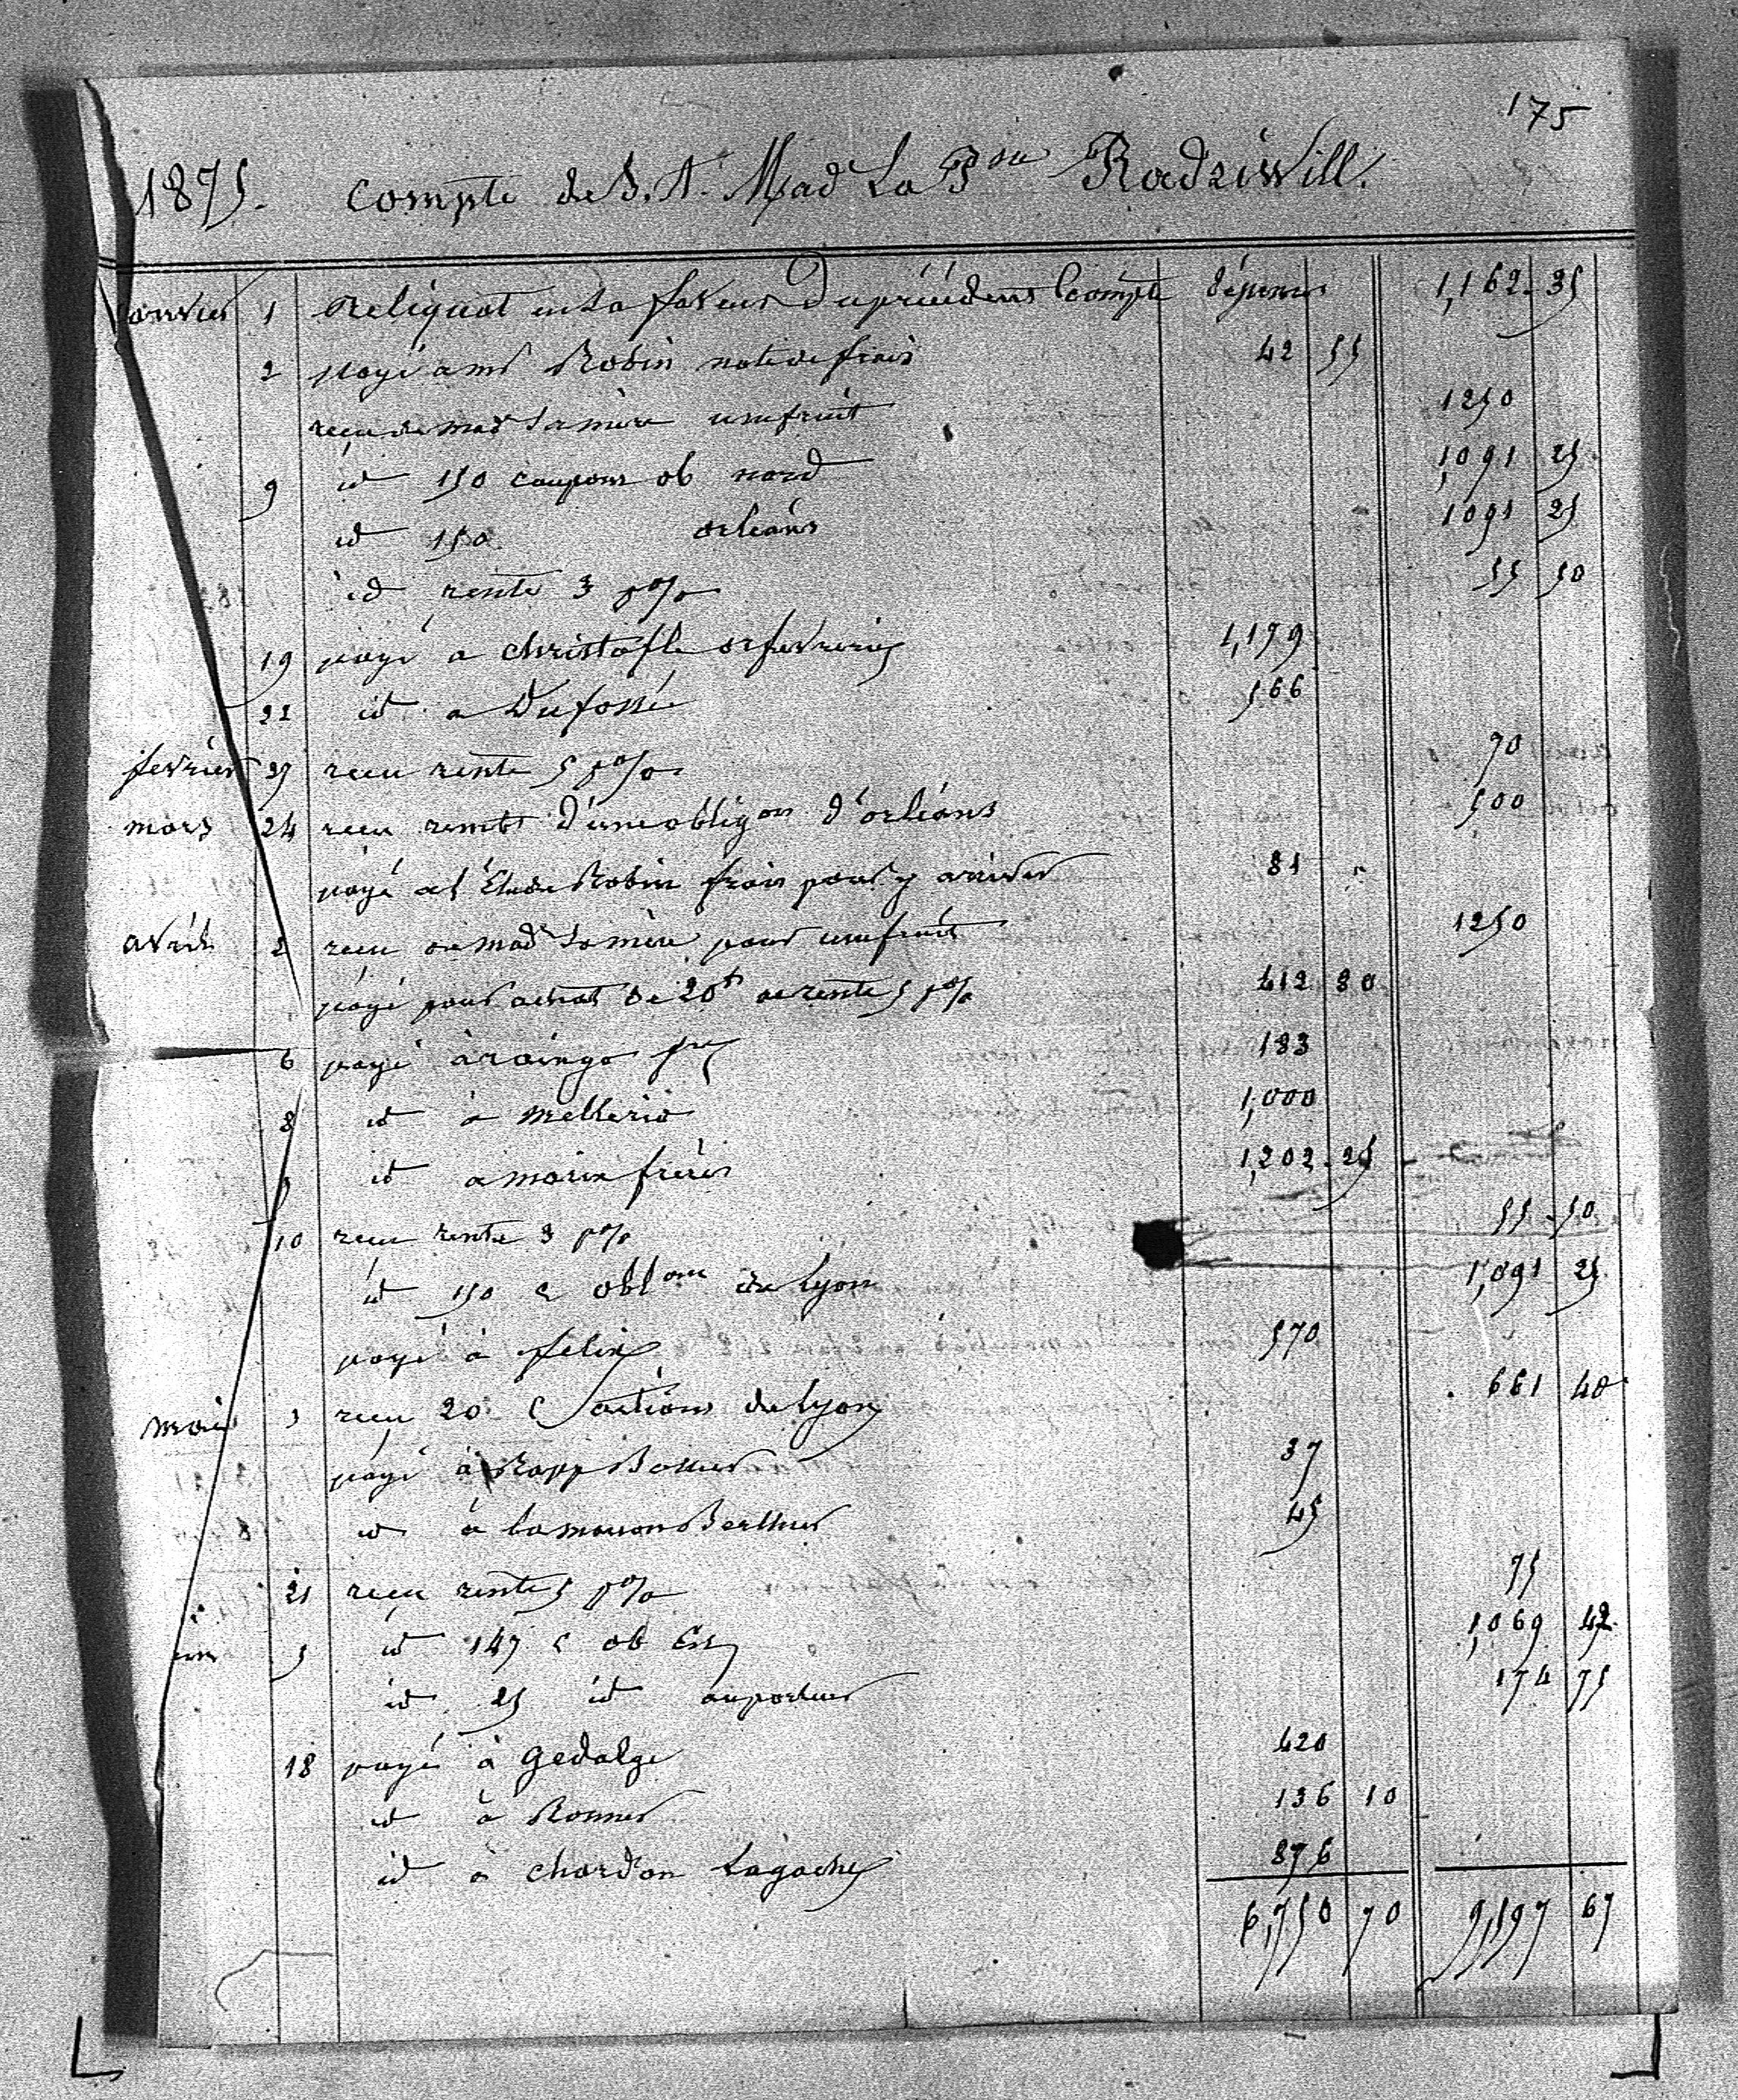 175
1875. Compte de S. A. Mad La Psse Radziwill.
janvier 1 Reliquat en sa faveur du précédent Compte dépenses 1,162. 35
2 payé a mr Robin note de frais 42 55
reçu de mad sa mère usufruit 1250
9 id 150 coupons ob nord 1,091 25
id 150 orléans 1091 25
id rente 3 p% 55 50
19 payé a christofle orfevrerie 1,179
22 id a Dufossé 566
fevrier 27 reçu rente 5 p% 70
mars 24 reçu rembt d'une obligon d'orléans 500
payé a l'Etude Robin frais pour y arriver 81 "
avril 2 reçu de mad sa mère pour usufruit 1250
payé pour achat de 20f de rente 5 p% 412 80
6 payé à raingo fres 183
8 id à mellerio 1,000
9 id a marix frères 1,202. 25
10 reçu rente 3 p% 55 50
id 150 c oblons de Lyon 1,091 25
payé à felix 570
mai 3 reçu 20 c actions de lyon 661 40
payé à Rapp Bottier 37
id à la maison Berthier 45
21 reçu rente 5 p% 75
juin 5 id 147 c ob Est 1,069 42
id 25 id au porteur 174 75
18 payé à Gedalge 420
id à Ronner 136 10
id à chardon Lagache 876
6,750 70 9,597 67